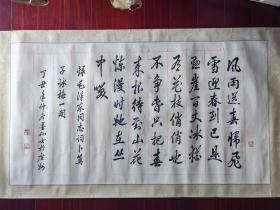 風雨送春歸飛
雪迎春到已是
悬崖百丈冰猶
有花枝俏俏也
不争春只把春
来报待到山花
烂漫时她在丛
中笑
録毛泽东同志词卜算
子咏梅一阕
丁丑年仲春